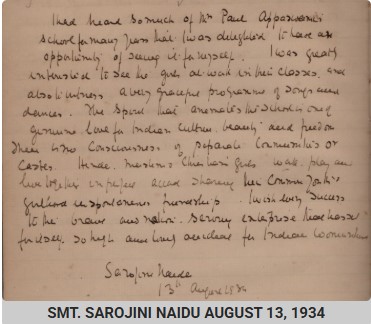 I had heard so much of Mr Paul Appasamy's
school for many years that I was delighted to have an
opportunity of seeing it for myself. I was greatly
interested to see the girls at work in their classes, and
also to witness a very graceful programme of songs and
dances. The spirit that animates the school is one of
genuine love for Indian culture, beauty and freedom
There is no Consciousness of separate Communities or
Castes. Hindu, Muslim & Christian girls work, play and
live together in perfect accord sharing their Common
girlhood in spontaneous friendship. I wish every success
to the brave and
so high and lovely an ideal for Indian womanhood
Sarojini Naidu
13th August 1934
SMT. SAROJINI NAIDU AUGUST 13, 1934